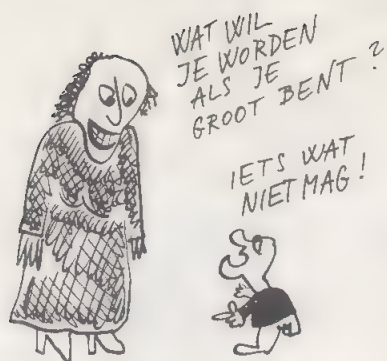 WAT WIL
JE WORDEN
ALS JE
GROOT BENT?
IETS WAT
NIET MAG!